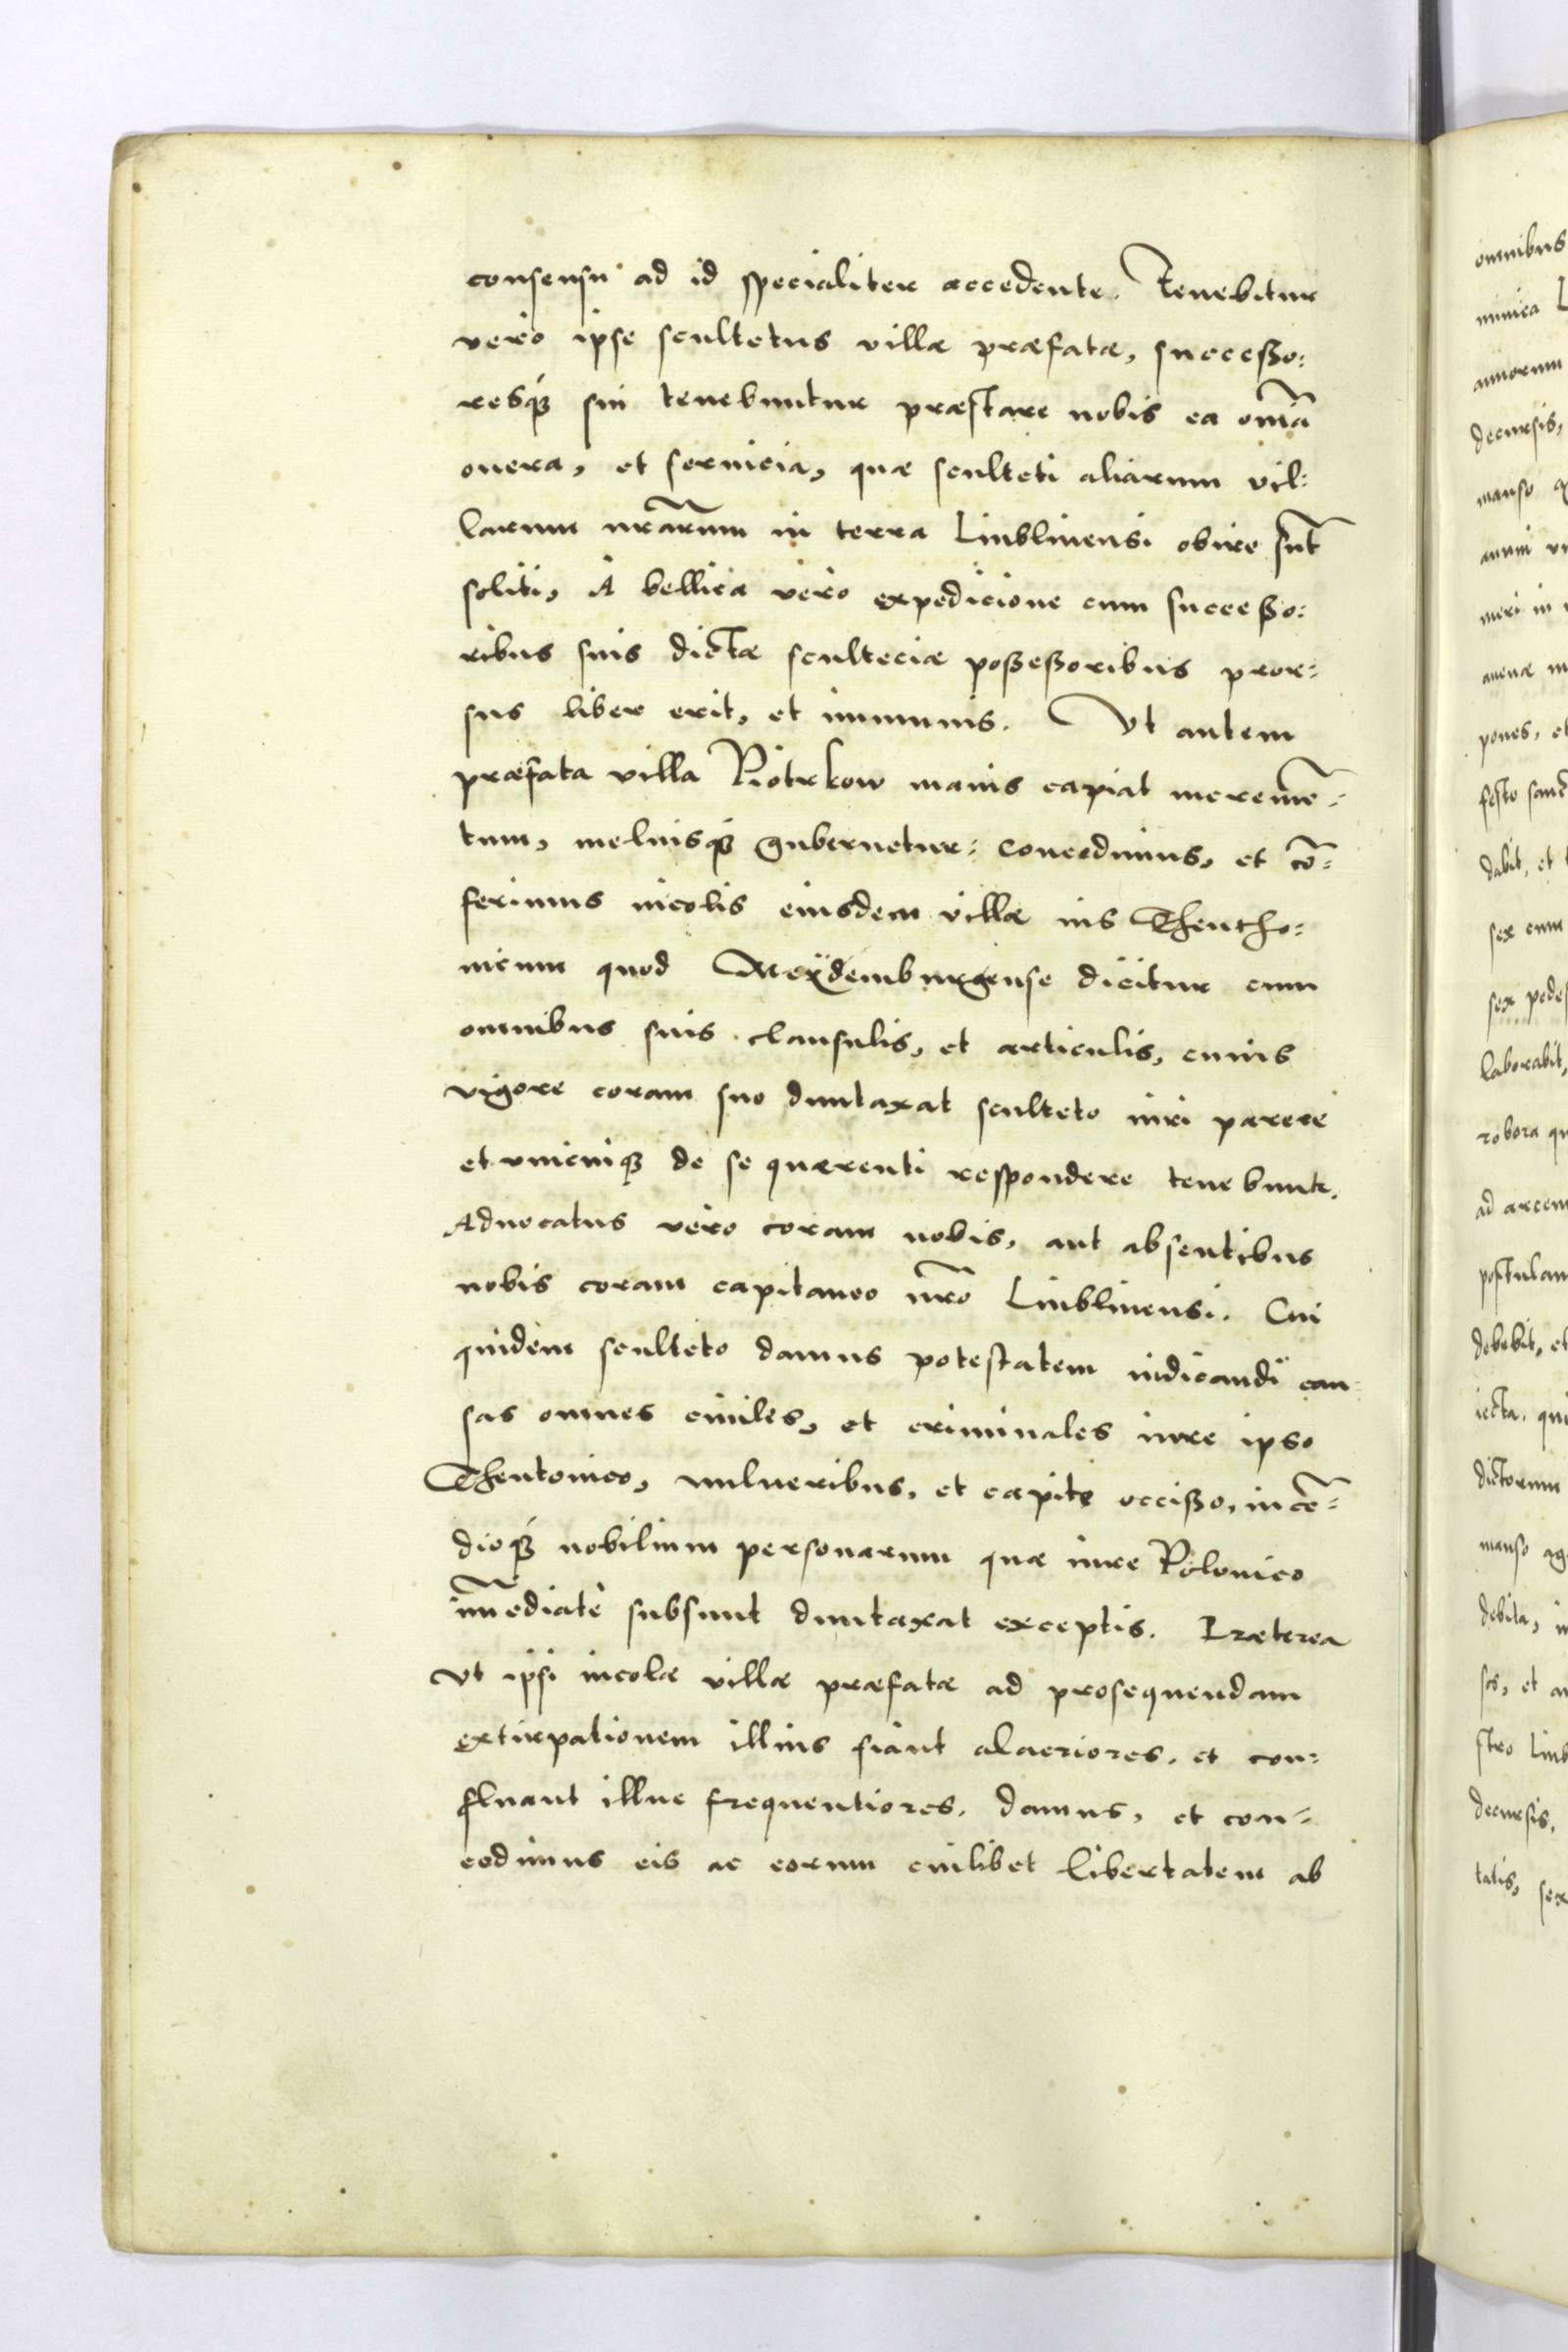 consensu ad id specialiter accedente. Tenebitur
vero ipse scultetus villæ præfatæ, successo:
resq́ sui tenebuntur præstare nobis ea om̃ia
onera, et seruicia, quæ sculteti aliarum vil:
larum nr̃arum in terra Liublinensi obire su̅t
soliti, A bellica vero expedicione cum successo:
ribus suis dictæ scultecię possessoribus pror:
sus liber erit, et immunis. Vt autem
præfata villa Piotrkow maius capiat mereme̅:
tum, meliusq́ gubernetur: concedimus, et co̅:
ferimus incolis eiusdem villæ ius Theutho:
nicum quod Meÿdemburgense dicitur cum
omnibus suis clausulis, et articulis, cuius
vigore coram suo duntaxat sculteto iuri parere
et vnicuiq́ de se quærenti respondere tenebunt.
Aduocatus vero coram nobis, aut absentibus
nobis coram capitaneo nr̃o Liublinensi. Cui
quidem sculteto damus potestatem iudicandi cau
sas omnes ciuiles, et criminales iure ipso
Theutonico, vulneribus, et capite occisso, ince̅:
dioq́ nobilium personarum quæ iure Polonico
im̅ediate subsunt duntaxat exceptis. Præterea
Vt ipsi incolæ villæ præfatæ ad prosequendam
extirpationem illius fiant alacriores, et con:
fluant illuc frequentiores. damus, et con:
cedimus eis ac eorum cuilibet libertatem ab
omnibus
annorum
decursis,
manso
pones, et
dabit, et
laborabit,
robora
ad arcem
debebit, et
dictorum
manso
debita,
decursis,
tatis, sex